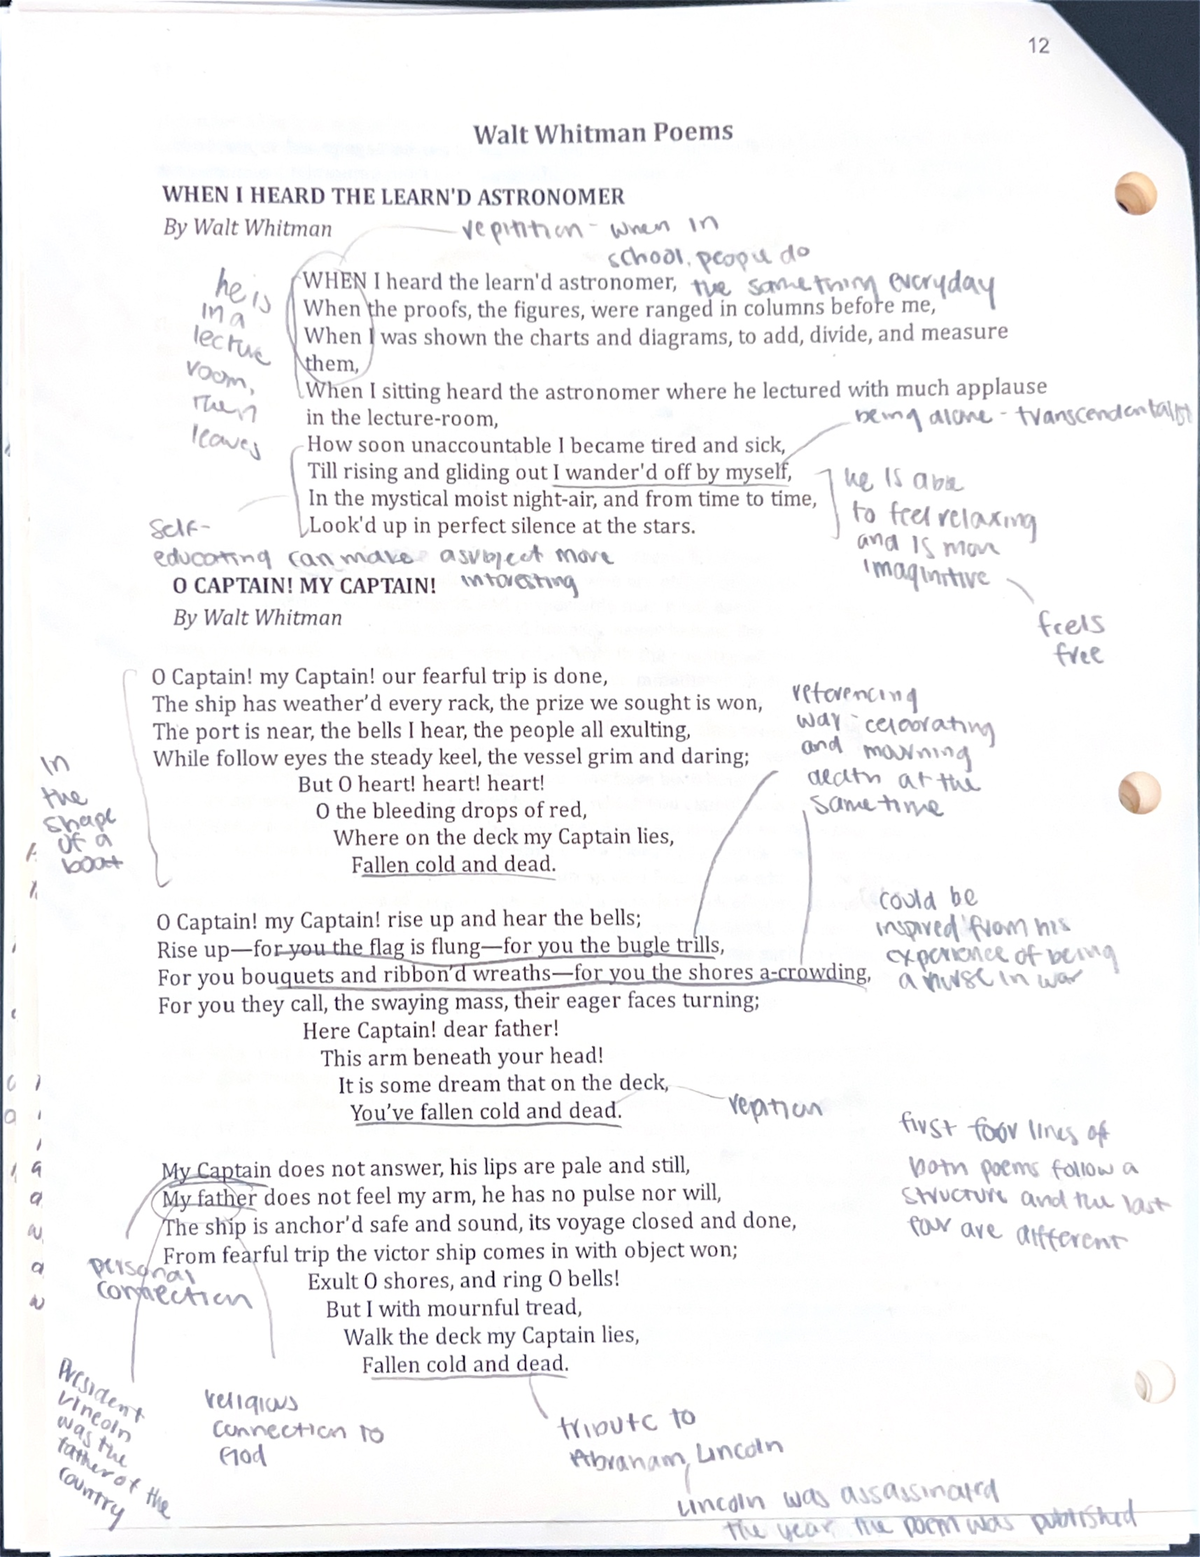 12
Walt Whitman Poems
WHEN I HEARD THE LEARN'D ASTRONOMER
By Walt Whitman
repitition - when in
school, people do
the something everyday
he is
in a
lecture
room,
then
leaves
WHEN I heard the learn'd astronomer,
When the proofs, the figures, were ranged in columns before me,
When I was shown the charts and diagrams, to add, divide, and measure
them,
When I sitting heard the astronomer where he lectured with much applause
in the lecture-room,
being alone - transcendentalist
How soon unaccountable I became tired and sick,
Till rising and gliding out I wander'd off by myself,
In the mystical moist night-air, and from time to time,
Look'd up in perfect silence at the stars.
he is able
to feel relaxing
and is more
imaginitive
feels
free
self-
educating can make a subject more
interesting
O CAPTAIN! MY CAPTAIN!
By Walt Whitman
O Captain! my Captain! our fearful trip is done,
The ship has weather'd every rack, the prize we sought is won,
The port is near, the bells I hear, the people all exulting,
While follow eyes the steady keel, the vessel grim and daring;
But O heart! heart! heart!
O the bleeding drops of red,
Where on the deck my Captain lies,
Fallen cold and dead.
in
the
shape
of a
boat
referencing
war - celebrating
and mourning
death at the
same time
O Captain! my Captain! rise up and hear the bells;
Rise up—for you the flag is flung—for you the bugle trills,
For you bouquets and ribbon'd wreaths—for you the shores a-crowding,
For you they call, the swaying mass, their eager faces turning;
Here Captain! dear father!
This arm beneath your head!
It is some dream that on the deck,
You've fallen cold and dead.
could be
inspired from his
experience of being
a nurse in war
repition
My Captain does not answer, his lips are pale and still,
My father does not feel my arm, he has no pulse nor will,
The ship is anchor'd safe and sound, its voyage closed and done,
From fearful trip the victor ship comes in with object won;
Exult O shores, and ring O bells!
But I with mournful tread,
Walk the deck my Captain lies,
Fallen cold and dead.
first four lines of
both poems follow a
structure and the last
four are different
personal
connection
President
Lincoln
was the
father of the
country
religious
connection to
God
tribute to
Abraham Lincoln
Lincoln was assassinated
the year the poem was published